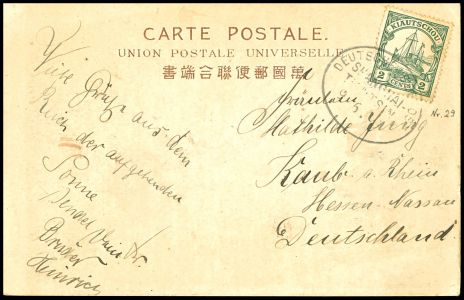 CARTE POSTALE.
UNION POSTALE UNIVERSELLE
書端合聯便郵國萬
KIAUTSCHOU
2 CENTS 2
DEUTSCHE
Nr. 29
Fräulein
Mathilde Jung
Kaub a. Rhein
Hessen-Nassau
Deutschland.
Viele Grüße aus dem
Reich der aufgehenden
Sonne
sendet Dein
Bruder
Heinrich